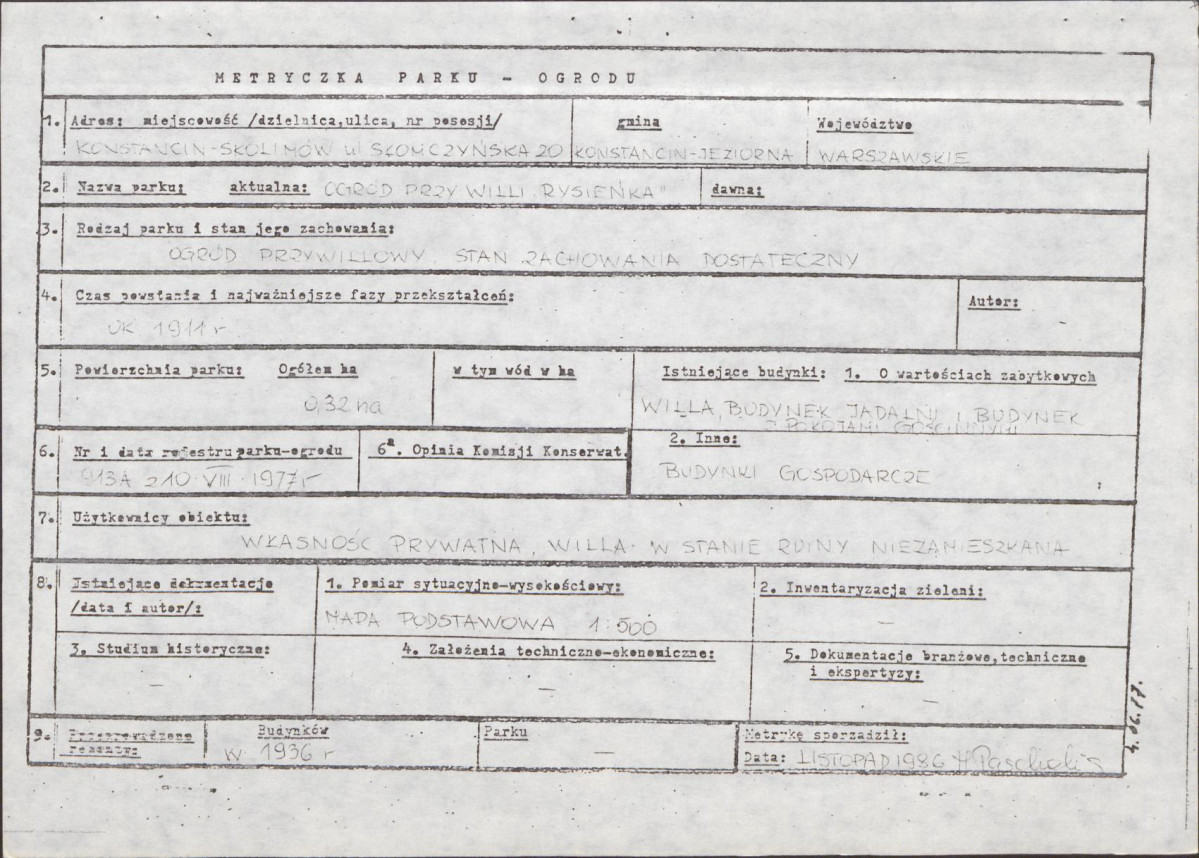 METRYCZKA PARKU - OGRODU
1. Adres: miejscowość /dzielnica,ulica, nr posesji/ gmina Województwo
KONSTANCIN-SKOLIMÓW ul SŁOMCZYŃSKA 20 KONSTANCIN-JEZIORNA WARSZAWSKIE
2. Nazwa parku: aktualna: OGRÓD PRZY WILLI „RYSIEŃKA" dawna:
3. Rodzaj parku i stan jego zachowania:
OGRÓD PRZYWILLOWY, STAN ZACHOWANIA DOSTATECZNY
4. Czas powstania i najważniejsze fazy przekształceń: Autor:
OK 1911 r
5. Powierzchnia parku: Ogółem ha w tym wód w ha Istniejące budynki: 1. O wartościach zabytkowych
0,32 ha
WILLA, BUDYNEK JADALNI I BUDYNEK
Z POKOJAMI GOŚCINNYMI
6. Nr i data rejestru parku-ogrodu 6a. Opinia Komisji Konserwat. 2. Inne:
913A z 10. VIII. 1977r BUDYNKI GOSPODARCZE
7. Użytkownicy obiektu:
WŁASNOŚĆ PRYWATNA, WILLA W STANIE RUINY NIEZAMIESZKANA
8. Istniejące dokumentacje
/data i autor/:
1. Pomiar sytuacyjno-wysokościowy:
MAPA PODSTAWOWA 1:500
2. Inwentaryzacja zieleni:
–
3. Studium historyczne:
–
4. Założenia techniczno-ekonomiczne:
–
5. Dokumentacje branżowe,techniczne
i ekspertyzy:
–
9. Przeprowadzone
remonty:
Budynków
W 1936 r
Parku
–
Metrykę sporządził:
Data: LISTOPAD 1986